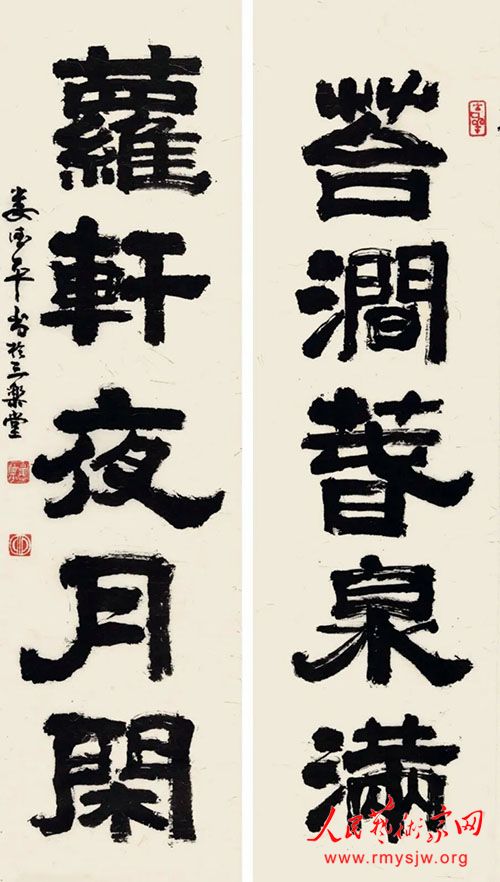 苔澗春泉满
蘿軒夜月閑
娄德平書於三樂堂
人民藝術家网
www.rmysjw.org